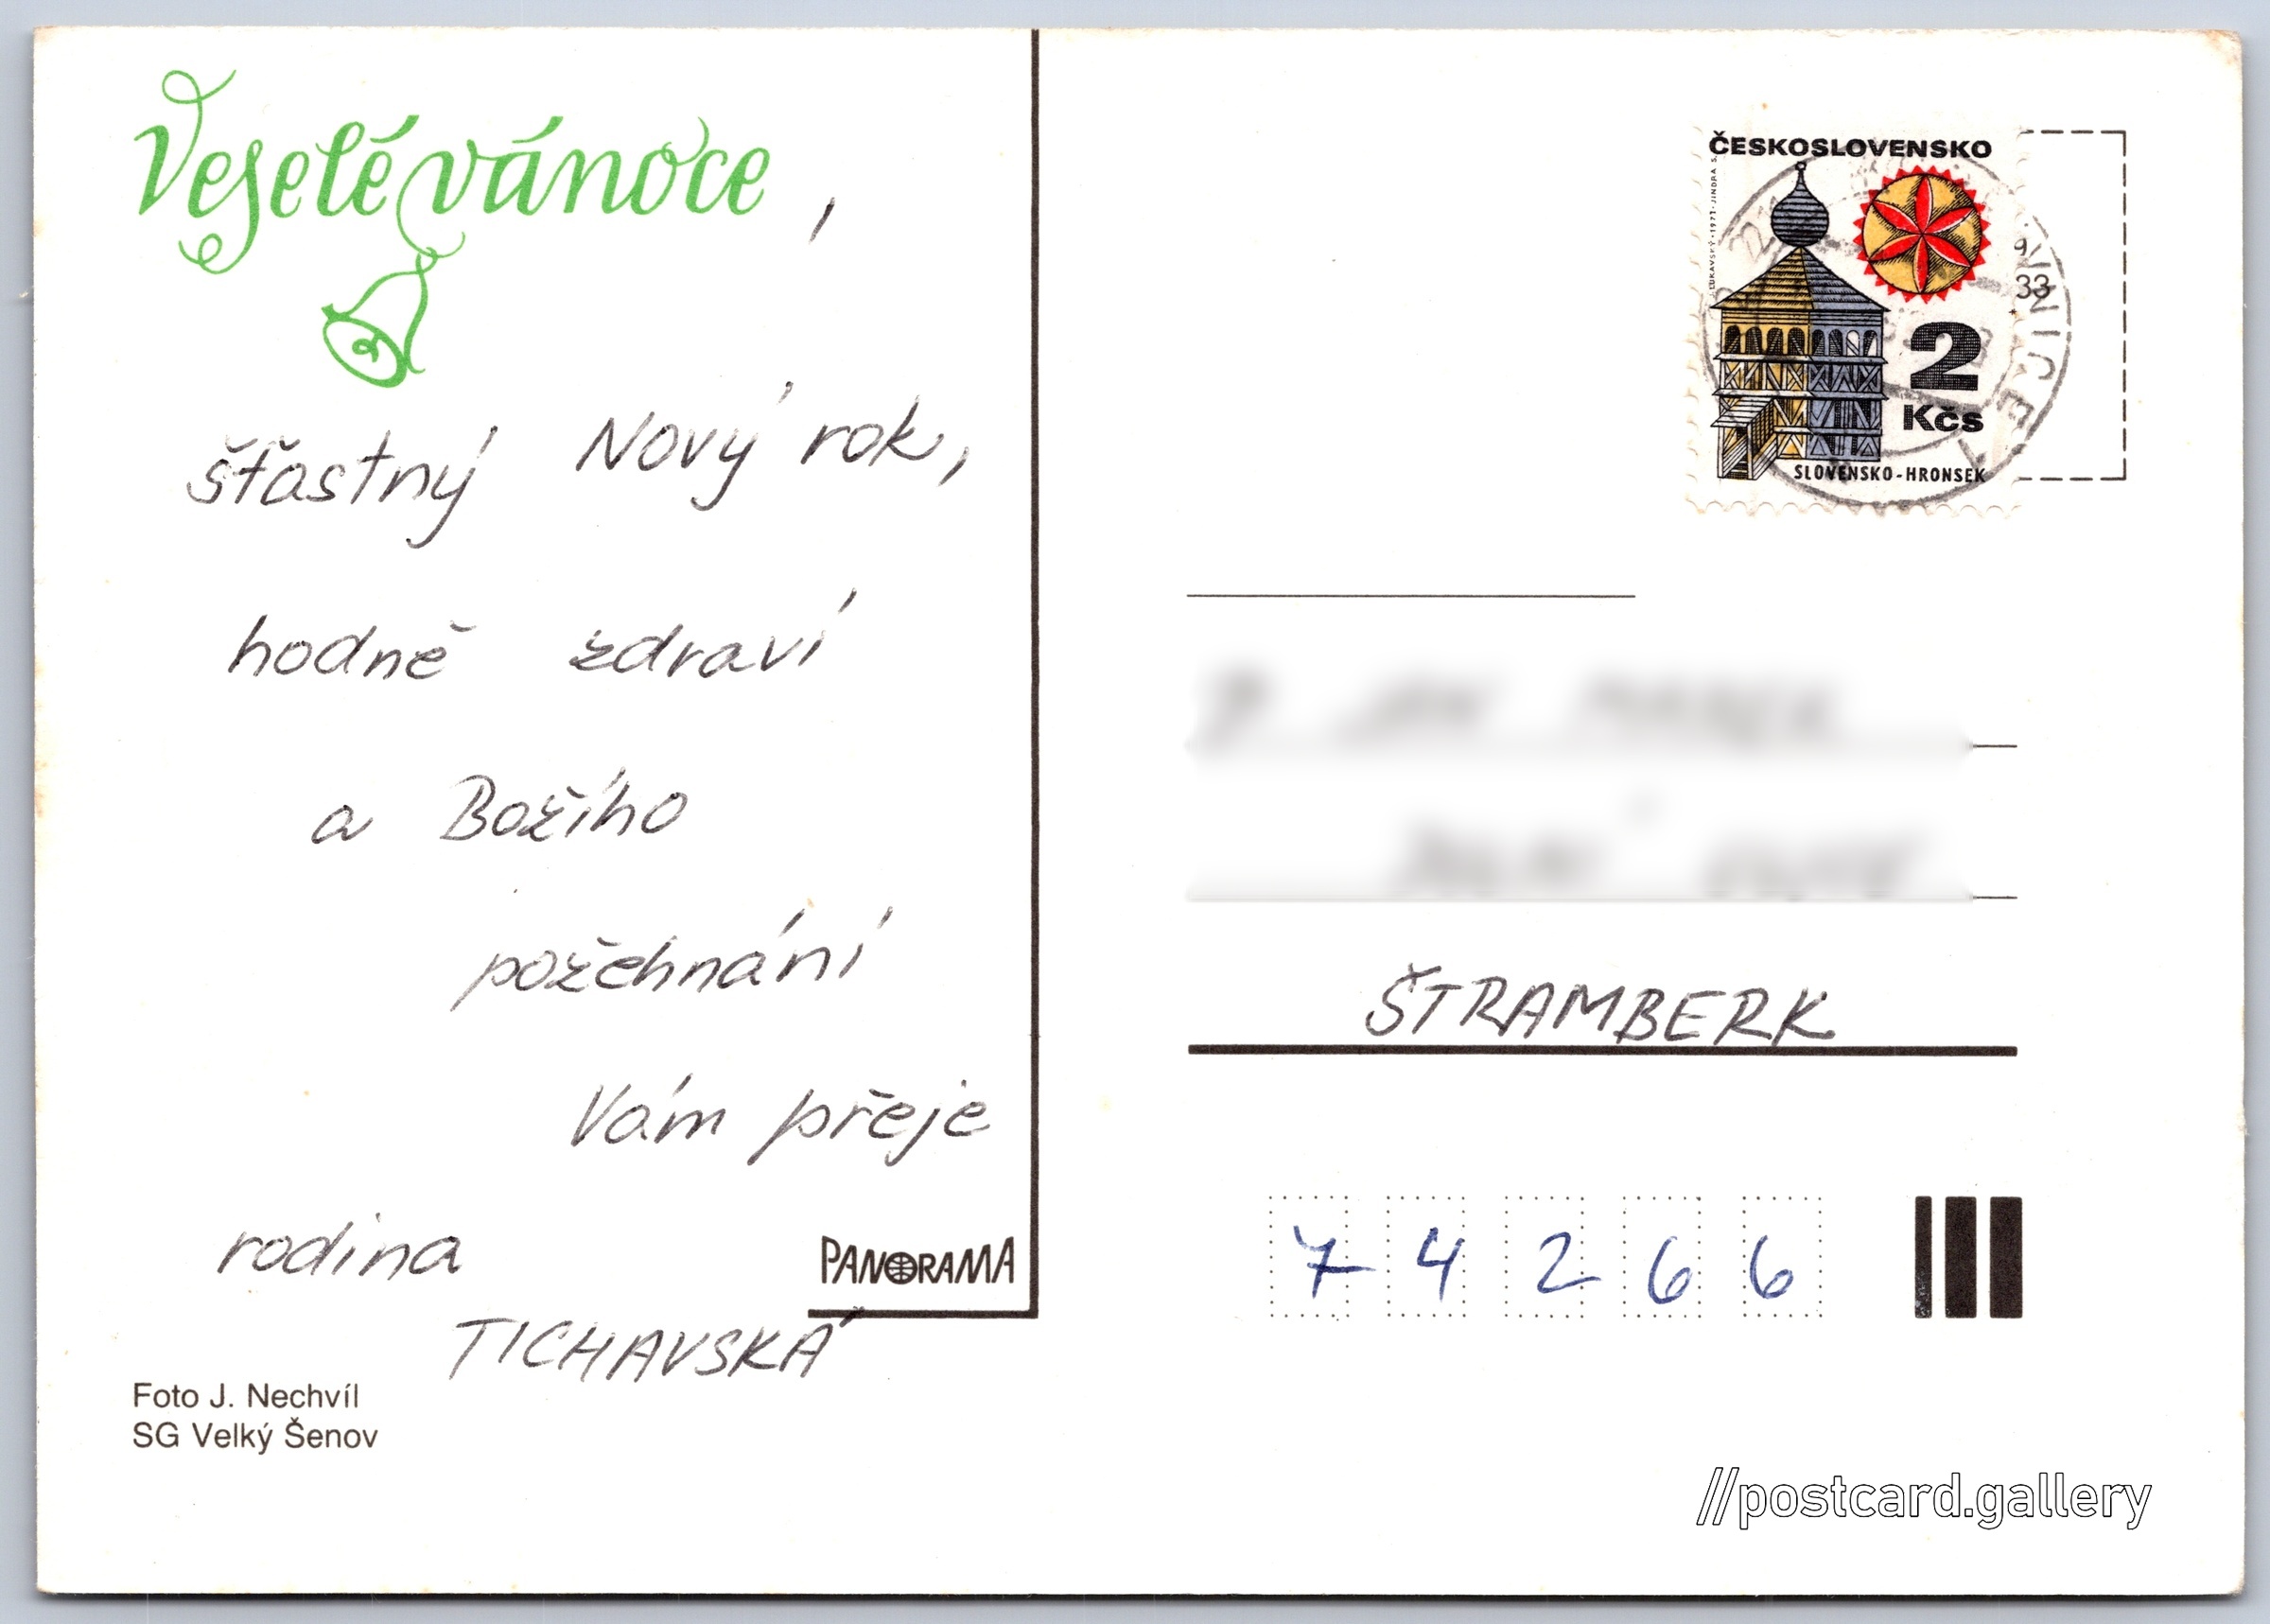 Veselé vánoce,
šťastný Nový rok,
hodně zdraví
a Božího
požehnání
Vám přeje
rodina
TICHAVSKÁ
PANORAMA
Foto J. Nechvíl
SG Velký Šenov
ČESKOSLOVENSKO
2
Kčs
SLOVENSKO-HRONSEK
9
33
ŠTRAMBERK
7 4 2 6 6
//postcard.gallery